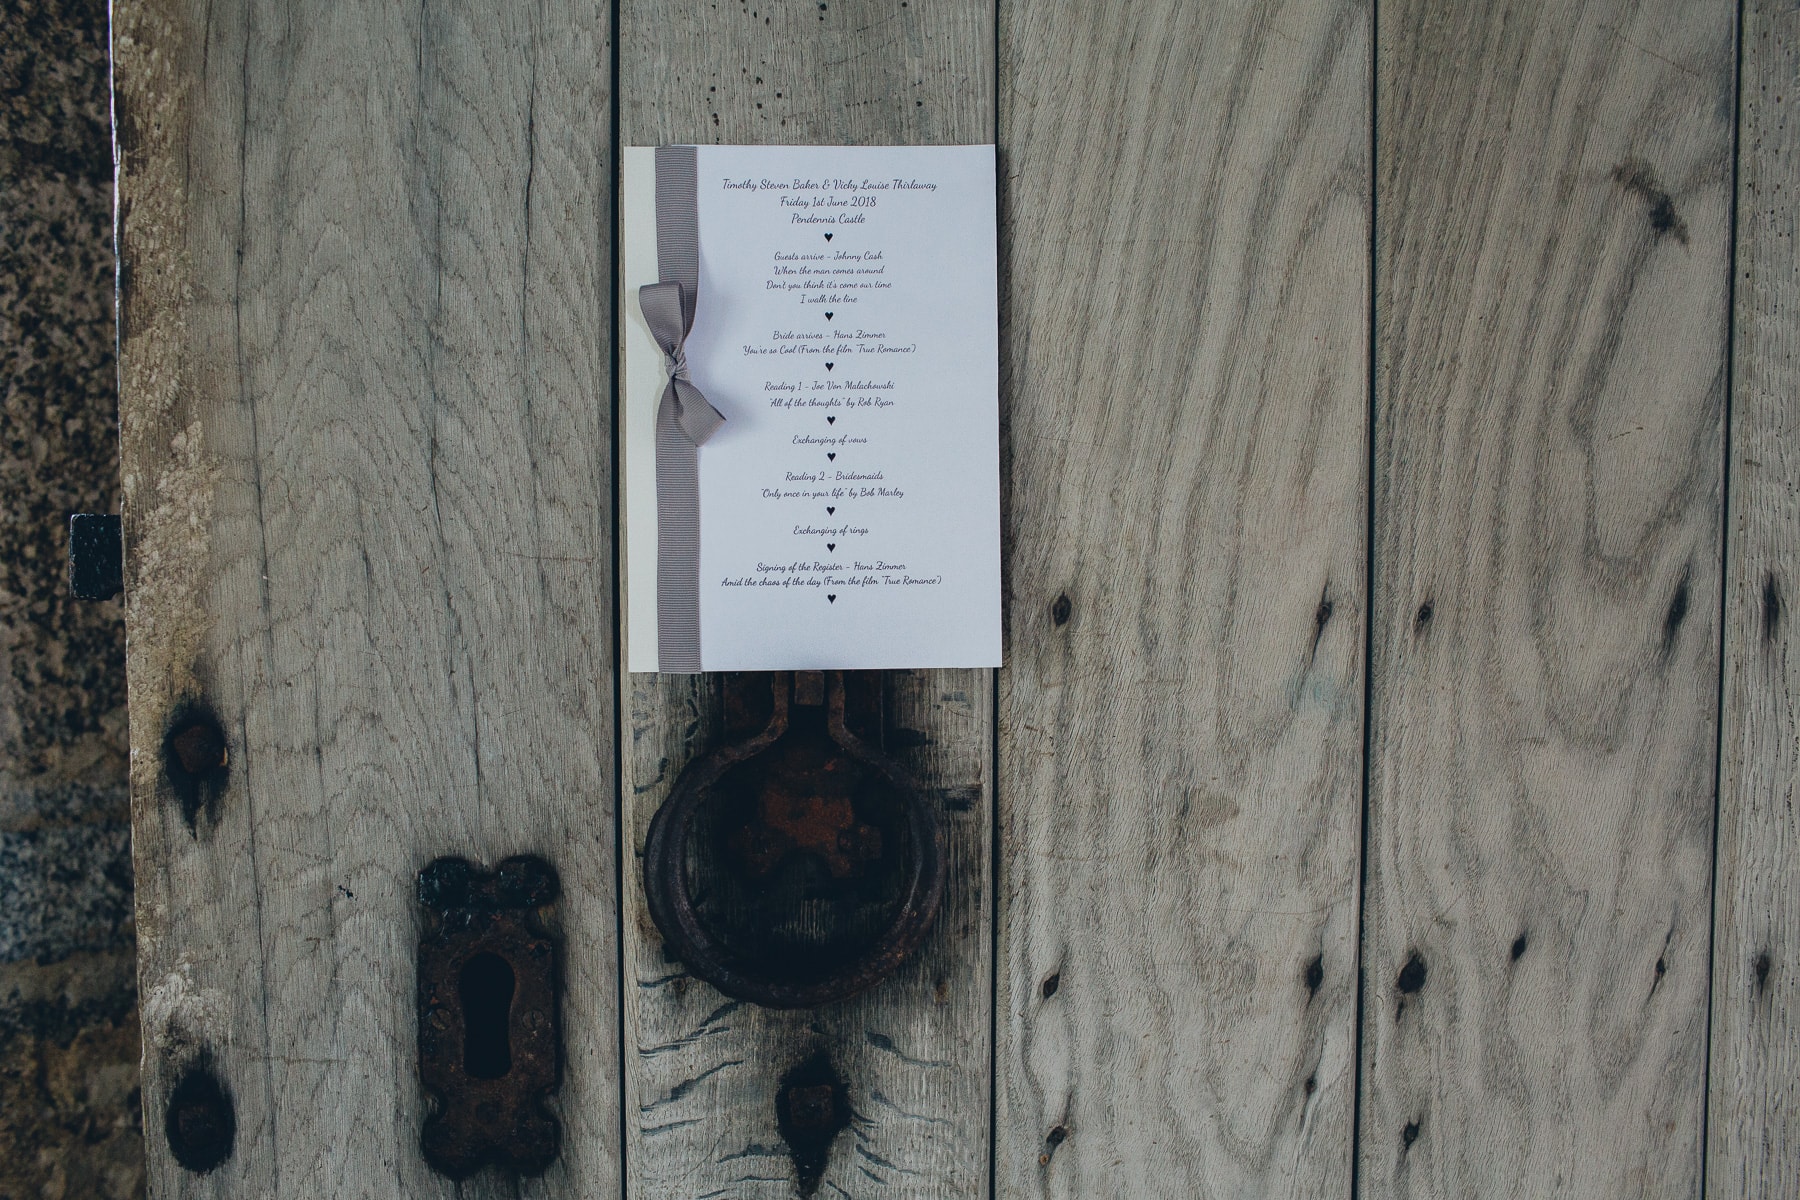 Timothy Steven Baker & Vicky Louise Thirlaway
Friday 1st June 2018
Pendennis Castle
♥
Guests arrive - Johnny Cash
When the man comes around
Don't you think it's come our time
I walk the line
♥
Bride arrives - Hans Zimmer
'You're so Cool (From the film "True Romance")
♥
Reading 1 - Joe Von Malachowski
"All of the thoughts" by Rob Ryan
♥
Exchanging of vows
♥
Reading 2 - Bridesmaids
"Only once in your life" by Bob Marley
♥
Exchanging of rings
♥
Signing of the Register - Hans Zimmer
Amid the chaos of the day (From the film "True Romance")
♥